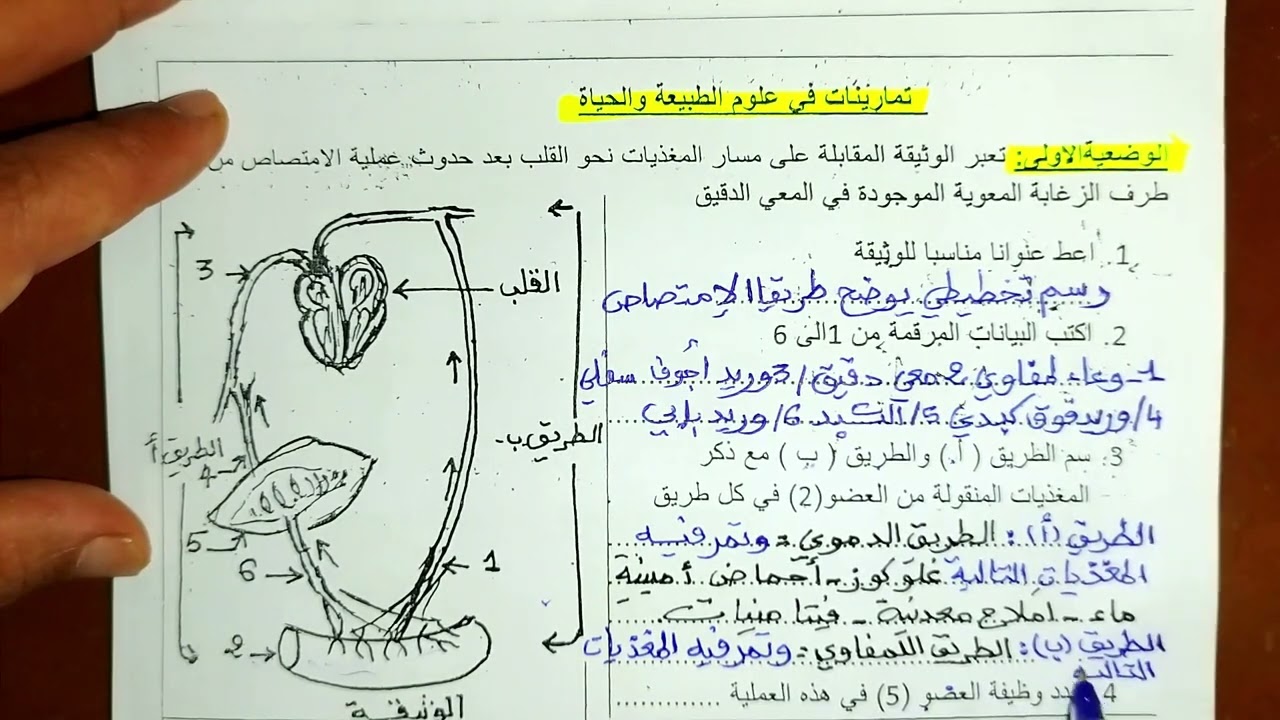 تمارينات في علوم الطبيعة والحياة
الوضعية الاولى: تعبر الوثيقة المقابلة على مسار المغذيات نحو القلب بعد حدوث عملية الامتصاص من
طرف الزغابة المعوية الموجودة في المعي الدقيق
1. اعط عنوانا مناسبا للوثيقة
رسم تخطيطي يوضح طريقا الإمتصاص
2. اكتب البيانات المرقمة من 1الى 6
1-وعاء لمفاوي 2 معي دقيق/3وريد أجوف سفلي
4/وريد فوق كبدي 5/الكبد 6/وريد بابي
3. سم الطريق ( أ ) والطريق ( ب ) مع ذكر
المغذيات المنقولة من العضو(2) في كل طريق
الطريق (أ): الطريق الدموي = وتمر فيه
المغذيات التالية غلوكوز - أحماض أمينية
ماء - املاح معدنية - فيتامينات
الطريق (ب): الطريق اللمفاوي = وتمر فيه المغذيات
التالية
4 وظيفة العضو (5) في هذه العملية
3
القلب
الطريق ب
الطريق أ
4
5
6
1
2
الوثيقة